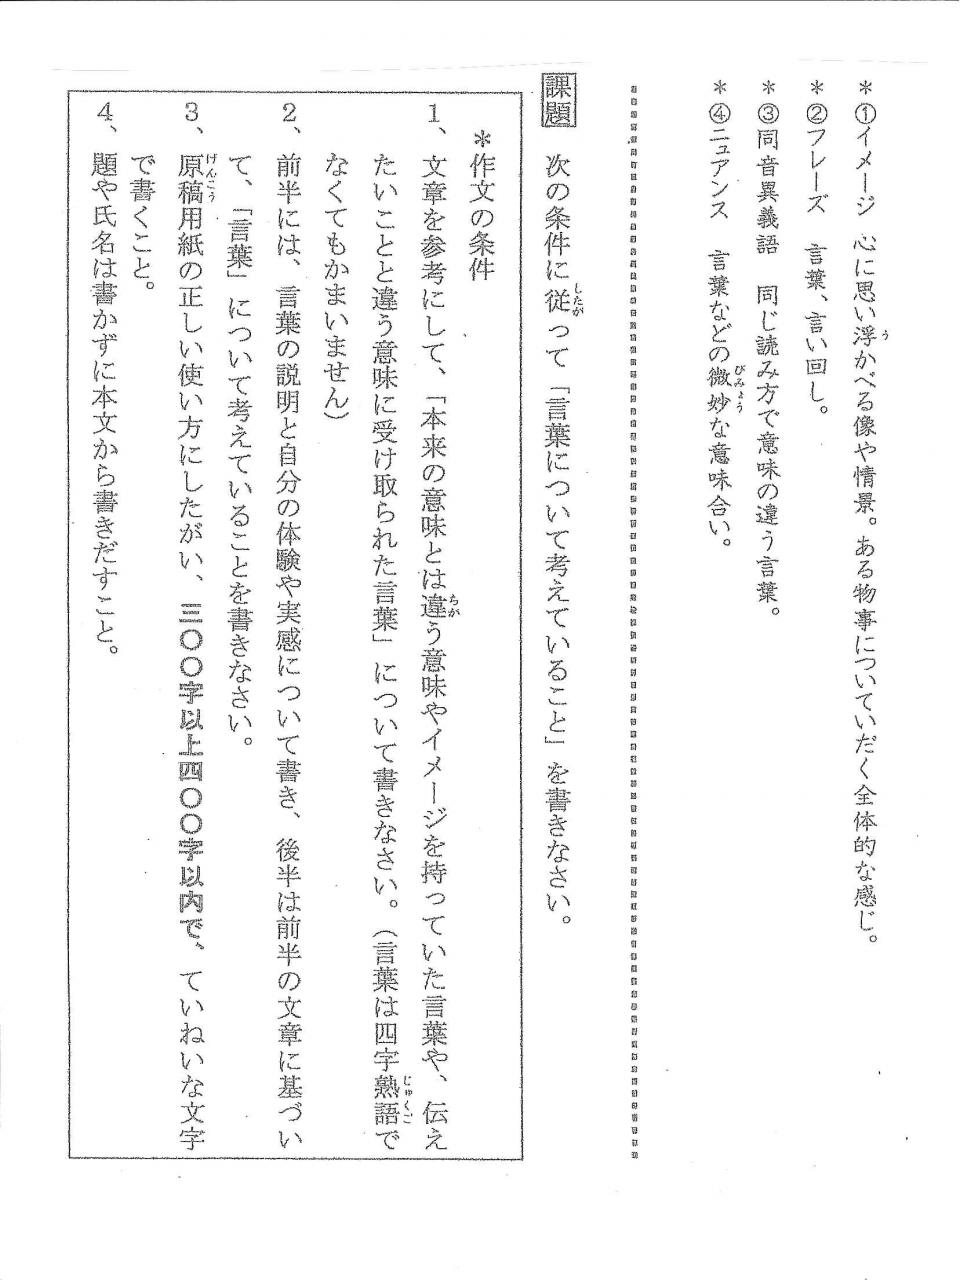 ＊①イメージ　心に思い浮かべる像や情景。ある物事についていだく全体的な感じ。
＊②フレーズ　言葉、言い回し。
＊③同音異義語　同じ読み方で意味の違う言葉。
＊④ニュアンス　言葉などの微妙な意味合い。
課題　次の条件に従って「言葉について考えていること」を書きなさい。
＊作文の条件
１、文章を参考にして、「本来の意味とは違う意味やイメージを持っていた言葉や、伝え
たいことと違う意味に受け取られた言葉」について書きなさい。（言葉は四字熟語で
なくてもかまいません）
２、前半には、言葉の説明と自分の体験や実感について書き、後半は前半の文章に基づい
て、「言葉」について考えていることを書きなさい。
３、原稿用紙の正しい使い方にしたがい、三〇〇字以上四〇〇字以内で、ていねいな文字
で書くこと。
４、題や氏名は書かずに本文から書きだすこと。